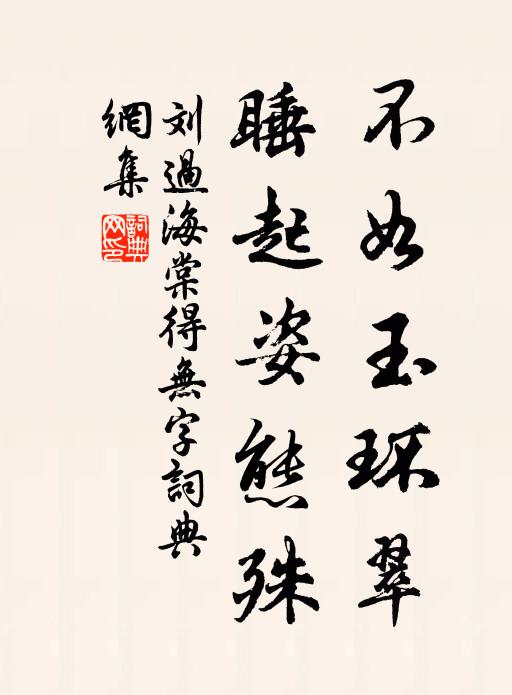 不如玉环翠
睡起姿態殊
刘過海棠得無字詞典
網集
詞典网印